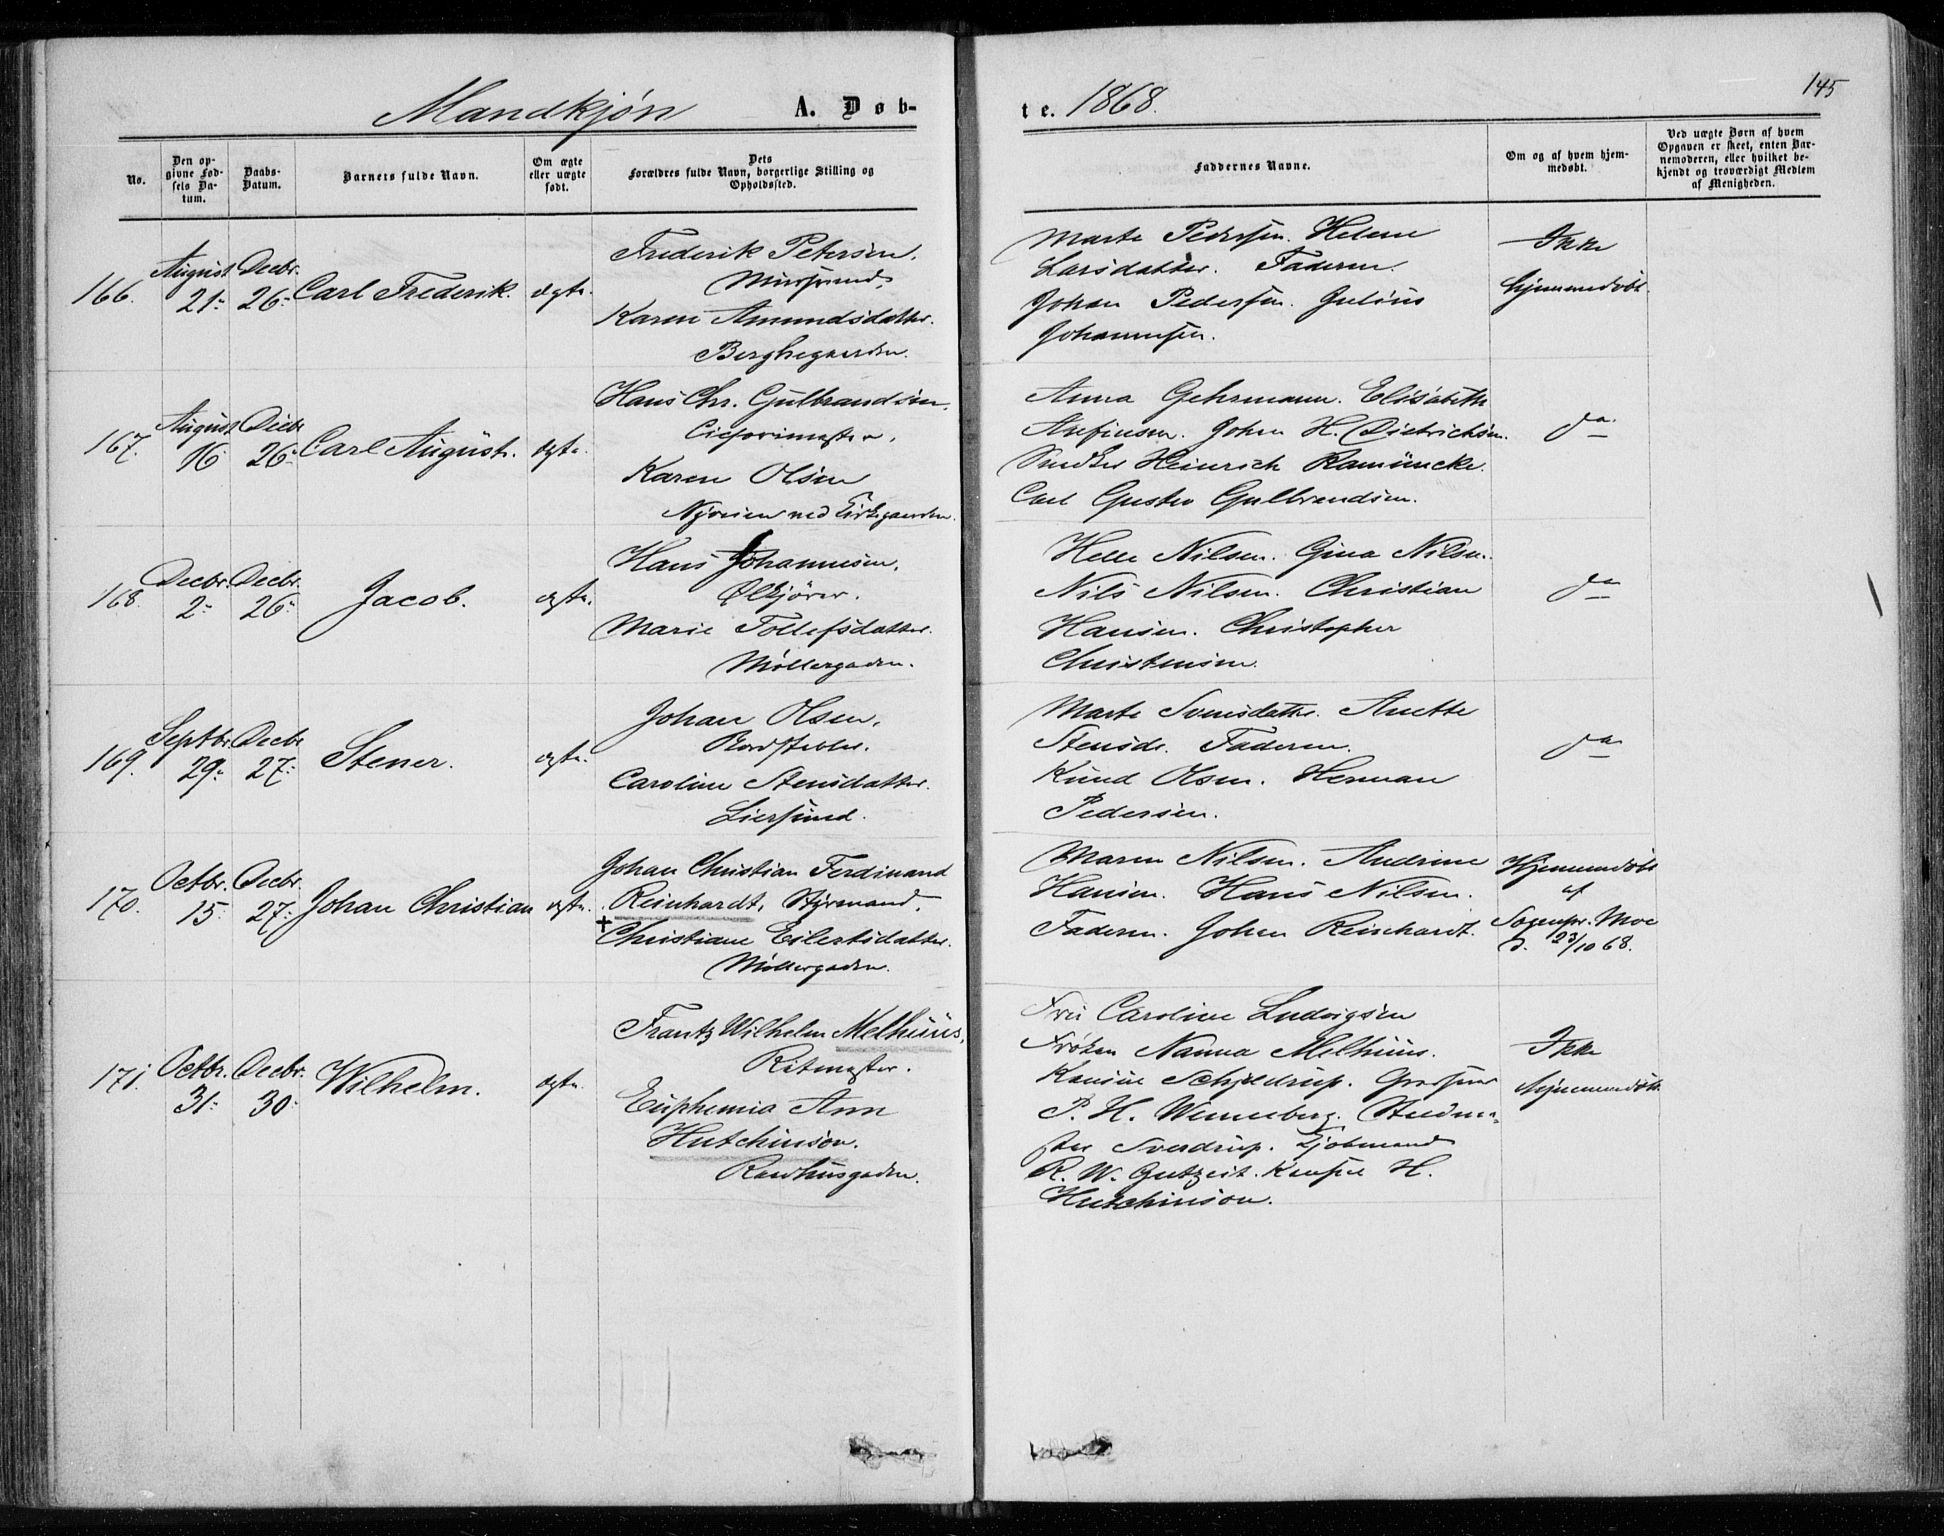 Mandkjøn A. Døb-
te. 1868.
145
No.
Den op-
givne Fød-
sels Da-
tum.
Daabs-
Datum.
Barnets fulde Navn.
Om ægte
eller uægte
født.
Dets
Forældres fulde Navn, borgerlige Stilling og
Opholdssted.
Faddernes Navne.
Om og af hvem hjem-
medøbt.
Ved uægte Børn af hvem
Opgaven er skeet, enten Bar-
nemoderen, eller hvilket be-
kjendt og troværdigt Medlem
af Menigheden.
166. August 21. Decbr. 26. Carl Frederik. ægte.
Frederik Petersen.
Muursvend,
Karen Amundsdatter.
Berghegaarden.
Marte Pedersen. Helene
Larsdatter. Faderen.
Johan Pedersen. Julius
Johannesen.
Ikke
hjemmedøbt.
167. August 16 Decbr 26. Carl August. ægte.
Hans Chr. Gulbrandsen,
Karen Olsen
Nyveien ved Kirkegaarden.
Anna Gehrmann. Elisabeth
Josefinsen. Johan H. Dietrichsen.
Snedker Heinrich Ramüncke.
Carl Gustav Gulbrandsen.
do
168. Decbr. 2. Decbr. 26. Jacob. ægte.
Hans Johannesen,
Ølkjører.
Marie Tollefsdatter.
Møllergaden.
Helle Nilsen. Gina Nilsen.
Nils Nilsen. Christian
Hansen. Christopher
Christensen.
do
169. Septbr. 29. Decbr 27. Stener. ægte.
Johan Olsen,
Bordstabler.
Caroline Stensdatter.
Liersund.
Marte Svensdatter. Anette
Stensdr. Faderen.
Knud Olsen. Herman
Pedersen.
do
170. Octbr. 15. Decbr. 27. Johan Christian ægte.
Johan Christian Ferdinand
Reinhardt, Styrmand,
+ Christiane Eilertsdatter.
Møllergaden.
Maren Nilsen. Andrine
Hansen. Hans Nilsen.
Faderen. Johan Reinhardt.
Hjemmedøbt
af
Sognepr. Moe
d. 23/10 68.
171. Octbr. 31. Decbr. 30. Wilhelm. ægte.
Frantz Wilhelm Melhuus,
Ritmester.
Euphemia Ann
Hutchinson.
Raadhusgaden.
Fru Caroline Ludvigsen
Frøken Nanna Melhuus.
Schjeldrup. Grosserer
P. H. Wenneberg. Stadme-
ster Sverdrup. Kjøbmand
R. W. Gutzeit. Konsul H.
Hutchinson.
Ikke
hjemmedøbt.